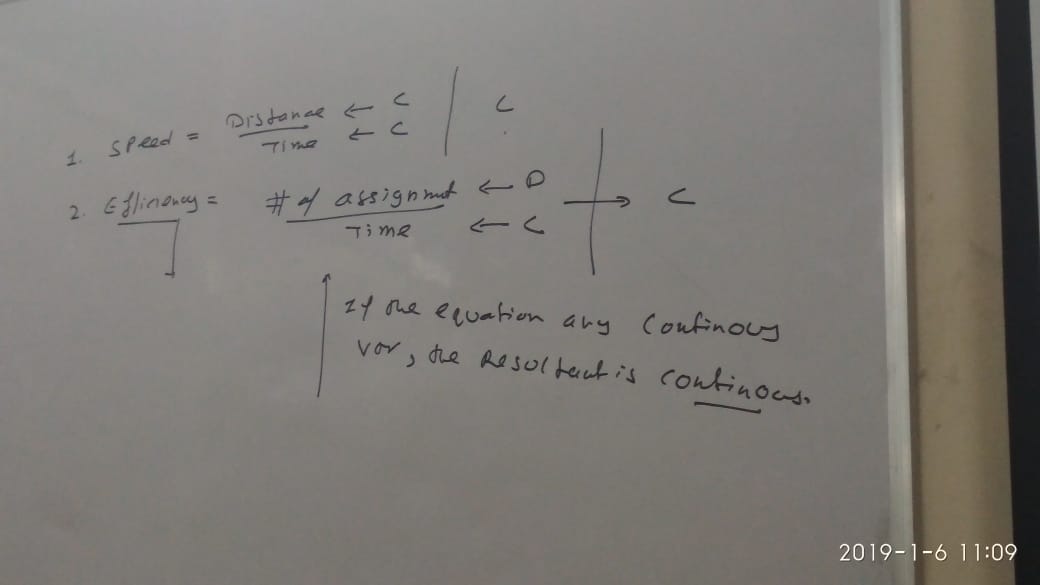 1. Speed = Distance ← C | C
Time ← C
2. Efficiency = # of assignmet ← D → C
Time ← C
If the equation any Continous
Var, the Resultant is continous.
2019-1-6 11:09